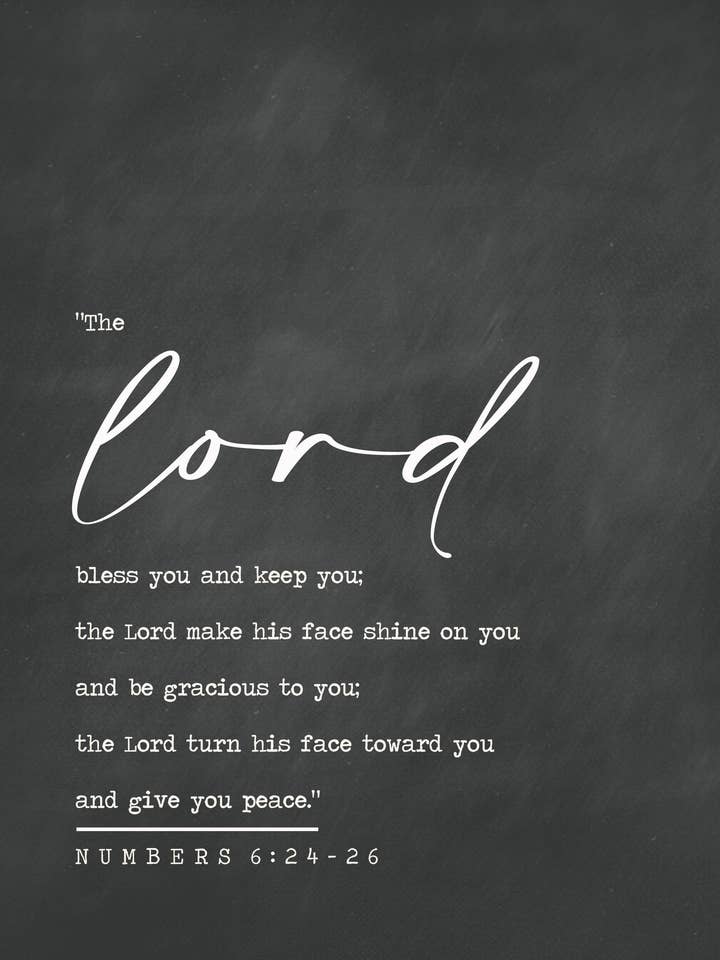 "The
lord
bless you and keep you;
the Lord make his face shine on you
and be gracious to you;
the Lord turn his face toward you
and give you peace."
NUMBERS 6:24-26